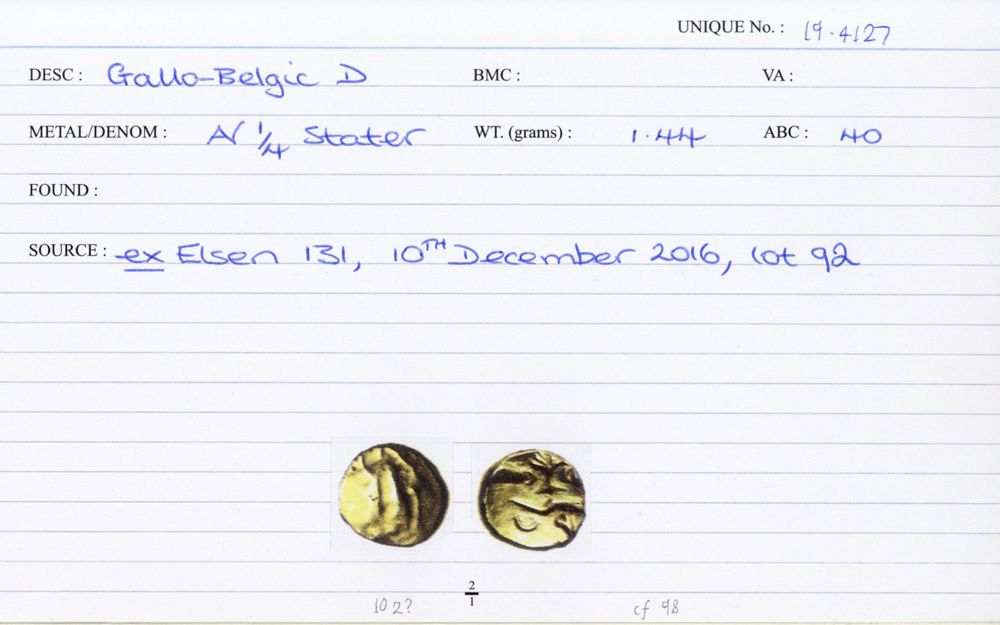 UNIQUE No. : 19.4127
DESC : Gallo-Belgic D BMC : VA :
METAL/DENOM : AV 1/4 Stater WT. (grams) : 1.44 ABC : 40
FOUND :
SOURCE : ex Elsen 131, 10TH December 2016, lot 92
2/1
102? cf 98